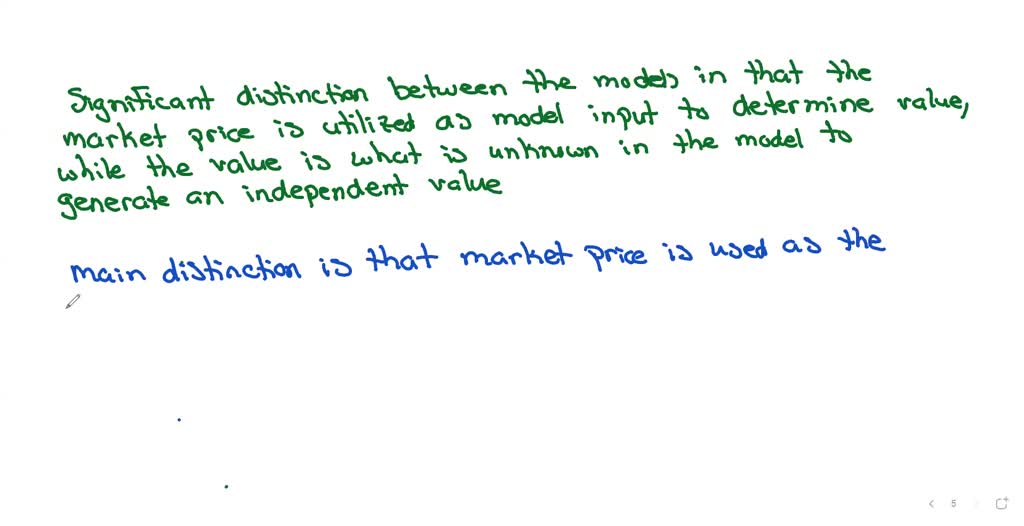 Significant distinction between the models in that the
market price is utilized as model input to determine value,
while the value is what is unknown in the model to
generate an independent value
main distinction is that market price is used as the
5